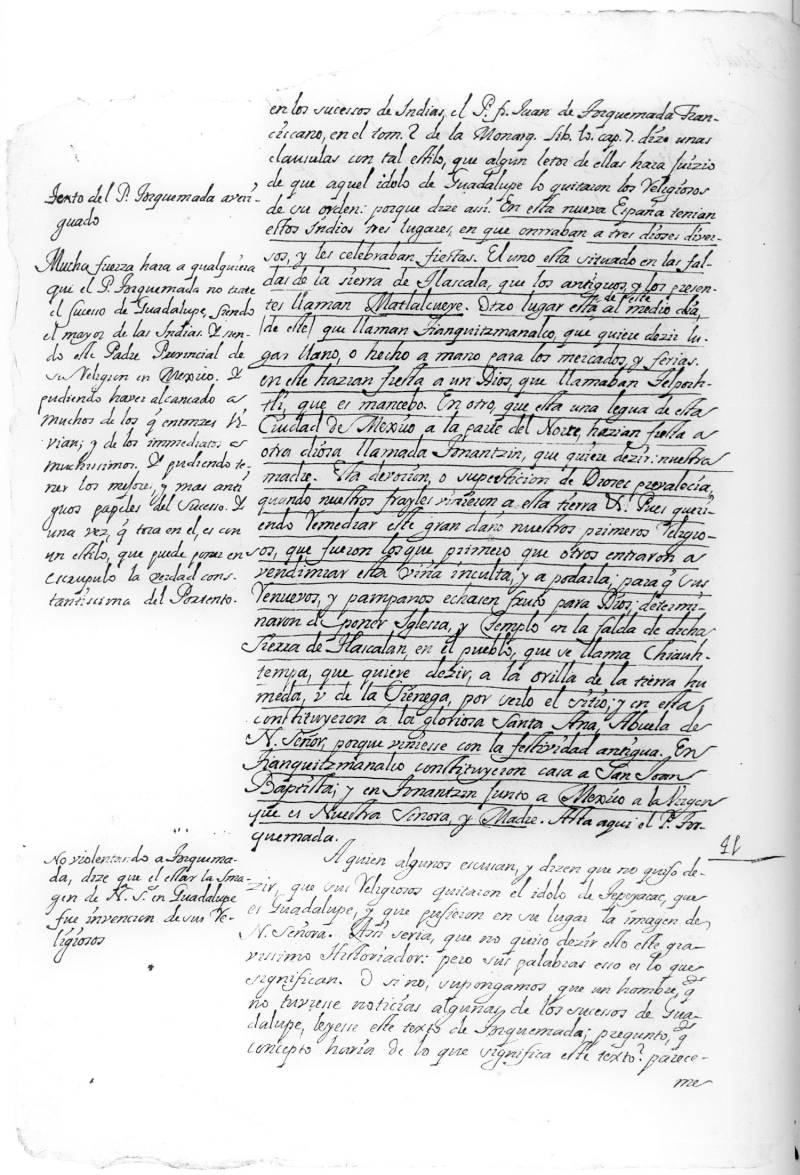 en los sucessos de Indias, el P. fr. Iuan de Torquemada Fran-
ciscano, en el tom. 2 de la Monarq. lib. 10. cap. 7. dize unas
clausulas con tal estilo, que algun letor de ellas hara juizio
de que aquel idolo de Guadalupe lo quitaron los Religiosos
de su orden: porque dize assi. En esta nueva España tenian
estos Indios tres lugares, en que onrraban a tres dioses diver-
sos, y les celebraban fiestas. El uno esta situado en las fal-
das de la sierra de Tlascala, que los antiguos, y los presen-
tes llaman Matlalcueye. Otro lugar esta de este al medio dia,
(de este) que llaman Tianquitzmanalco, que quiere dezir lu-
gar llano, o hecho a mano para los mercados, y ferias.
en este hazian fiesta a un Dios, que llamaban Telpoch-
tli, que es mancebo. En otro, que esta una legua de esta
Ciudad de Mexico a la parte del Norte, hazian fiesta a
otra diosa llamada Tonantzin, que quiere dezir: nuestra
madre. Esta devocion, o supersticion de Dioses prevalecia,
quando nuestros frayles vinieron a esta tierra &. Pues queri-
endo Remediar este gran daño nuestros primeros Religio-
sos, que fueron los que primero que otros entraron a
vendimiar esta viña inculta, y a podarla, para q̃ sus
Renuevos, y pampanos echasen fruto para Dios; determi-
naron de poner Iglesia, y Templo en la falda de dicha
Sierra de Tlascalan, en el pueblo, que se llama Chiauh-
tempa, que quiere dezir, a la orilla de la tierra hu
meda, v de la Cienega, por serlo el sitio; y en esta
constituyeron á la gloriosa Santa Ana, Abuela de
N. Señor, porque viniesse con la festividad antigua. En
Tianquitzmanalco constituyeron casa a San Joan
Baptista; y en Tonantzin junto a Mexico a la Virgen
que es Nuestra Señora, y Madre. Asta aqui el P. Tor-
quemada.
A quien algunos escusan, y dizen que no quiso de-
zir, que sus Religiosos quitaron el idolo de Tepeyacac, que
es Guadalupe, y que pusieron en su lugar la imagen de
N. Señora. Assi seria, que no quiso dezir esto este gra-
vissimo Historiador: pero sus palabras esso es lo que
significan. O si no, supongamos que un hombre, q̃
no tuviesse noticias algunas de los sucesos de Gua-
dalupe, leyesse este texto de Torquemada; pregunto, q̃
concepto haria de lo que significa este texto? parece-
me
Texto del P. Torquemada averi-
guado
Mucha fuerza hara a qualquiera
que el P. Torquemada no trate
el suceso de Guadalupe, siendo
el mayor de las Indias. Y sien-
do este Padre Provincial de
su Religion en Mexico. Y
pudiendo haver alcanzado a
muchos de los q̃ entonzes vi-
vian; y de los immediatos a
muchissimos. Y pudiendo te-
ner los mejores, y mas anti-
guos papeles del Sucesso. Y
una vez, q̃ toca en el, es con
un estilo, que puede poner en
escrupulo la verdad cons-
tantissima del Portento.
No violentando a Torquema-
da, dize que el estar la Ima-
gen de N. Sª. en Guadalupe
fue invencion de sus Re-
ligiosos
41